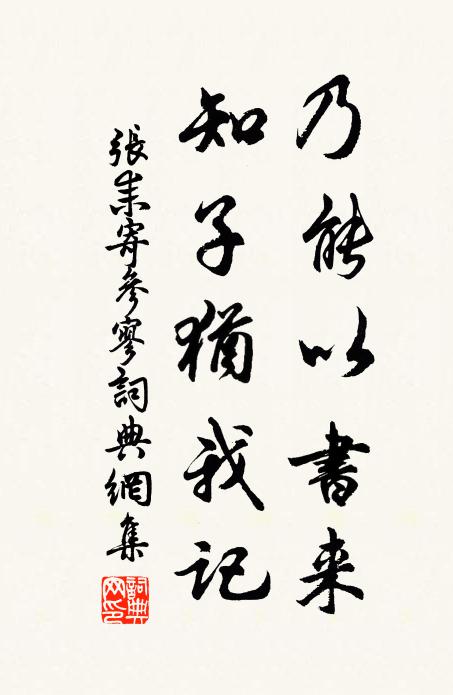 乃能以書来
知子猶我记
張耒寄參寥詞典網集
詞典网印